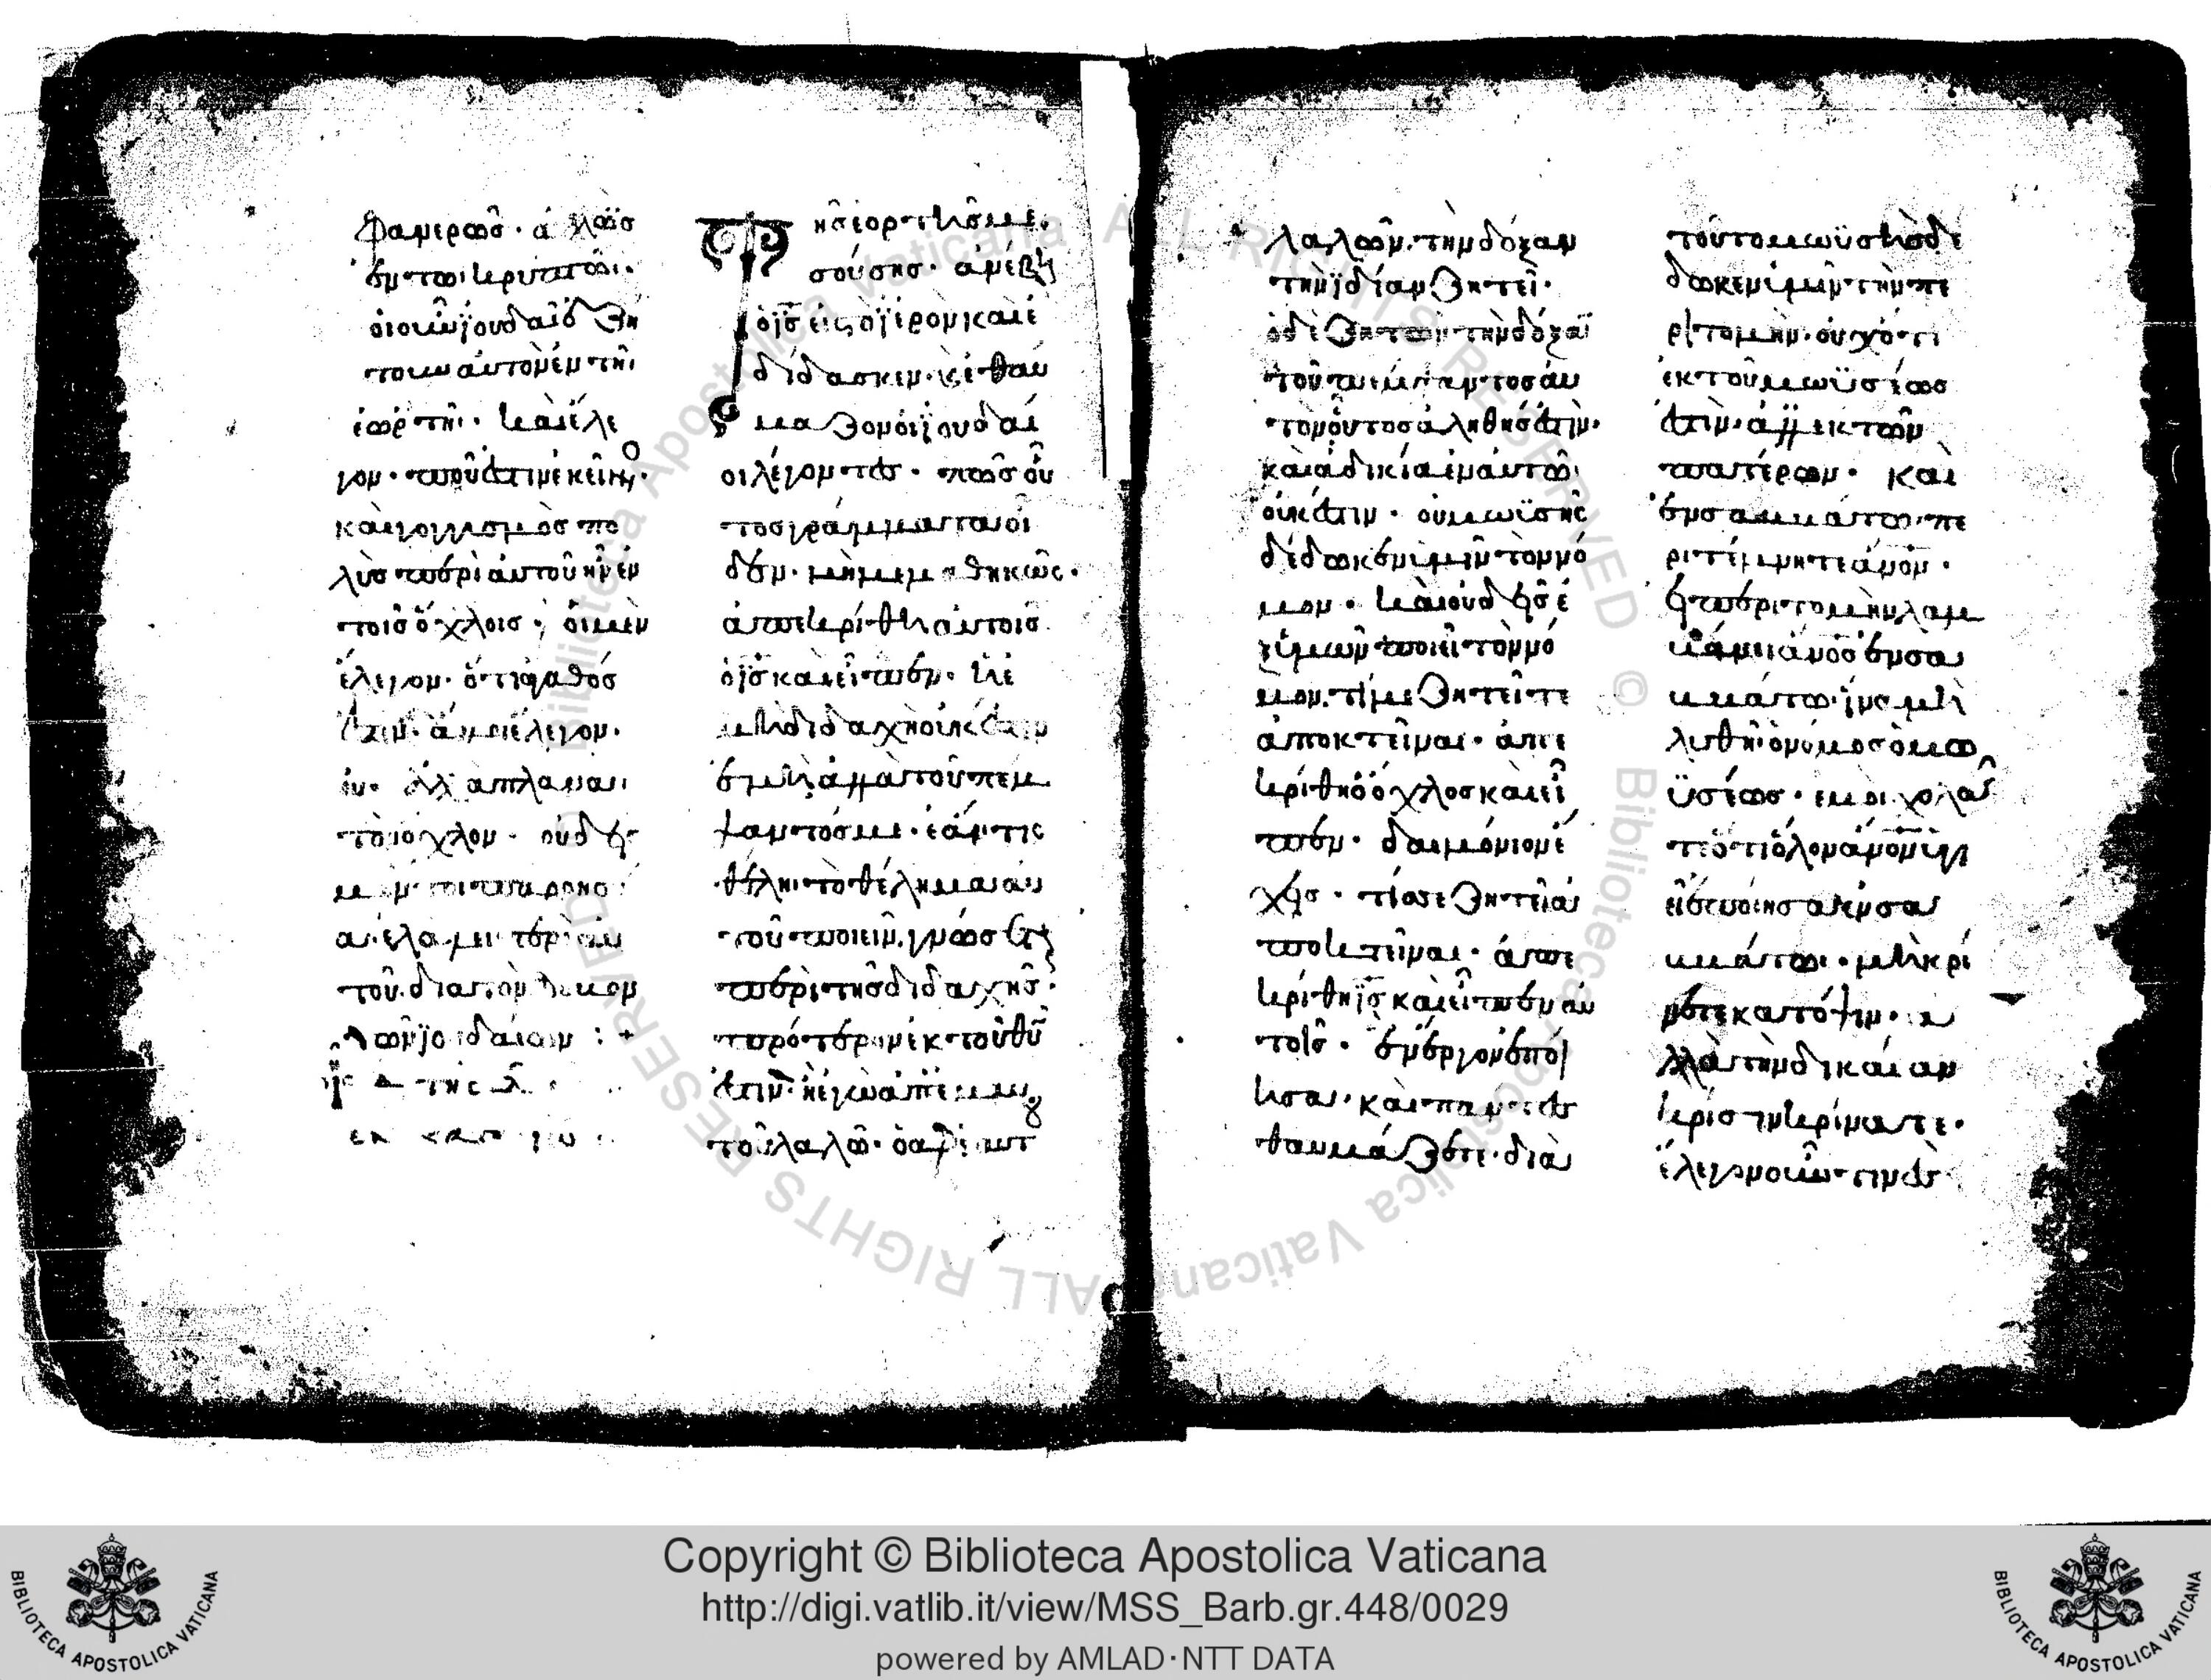 φανερῶς· ἀλλ ὡς
ἐν τῶι κρυπτῶι·
οἱ οὖν ϊουδαῖοι ἐζή
τουν αὐτὸν ἐν τῆι
ἑορτῆι· καὶ ἔλε
γον· ποῦ ἐστιν ἐκεῖνος·
καὶ γογγυσμὸς πο
λὺς περὶ αὐτοῦ ἦν ἐν
τοῖς ὄχλοις· οἱ μὲν
ἔλεγον· ὅτι ἀγαθός
ἐστιν· ἄλλοι ἔλεγον·
οὔ· ἀλλὰ πλανᾶι
τὸν ὄχλον· οὐδεὶς
μέντοι παρρησί
αι ἐλάλει περὶ αὐ
τοῦ διὰ τὸν φόβον
τῶν ϊουδαίων : +
τῆς
Τῆς ἑορτῆς με
σούσης· ἀνέβη
ὁ ι̅ς̅ εἰς τὸ ϊερὸν καὶ ἐ
δίδασκεν· καὶ ἐθαύ
μαζον οἱ ϊουδαῖ
οι λέγοντες· πῶς οὗ
τος γράμματα οἶ
δεν· μὴ μεμαθηκώς·
ἀπεκρίθη αὐτοῖς
ὁ ι̅ς̅ καὶ εἶπεν· ἡ ἐ
μὴ διδαχὴ οὐκ ἔστιν
ἐμὴ ἀλλὰ τοῦ πέμ
ψαντός με· ἐάν τις
θέληι τὸ θέλημα αὐ
τοῦ ποιεῖν, γνώσεται
περὶ τῆς διδαχῆς·
πρότερον ἐκ τοῦ θ̅υ̅
ἐστιν· ἢ ἐγὼ ἀπ ἐμαυ
τοῦ λαλῶ· ὁ ἀφ ἑαυτ
λαλῶν· τὴν δόξαν
τὴν ϊδίαν ζητεῖ·
ὁ δὲ ζητῶν τὴν δόξαν
τοῦ πέμψαντος αὐ
τὸν οὗτος ἀληθής ἐστιν·
καὶ ἀδικία ἐν αὐτῶι
οὐκ ἔστιν· οὐ μωϋσῆς
δέδωκεν ὑμῖν τὸν νό
μον· καὶ οὐδεὶς ἐ
ξ ὑμῶν ποιεῖ τὸν νό
μον. τί με ζητεῖτε
ἀποκτεῖναι· ἀπε
κρίθη ὁ ὄχλος καὶ εἶ
πεν· δαιμόνιον ἔ
χεις· τίς σε ζητεῖ ἀ
ποκτεῖναι· ἀπε
κρίθη ι̅ς̅ καὶ εἶπεν αὐ
τοῖς· ἓν ἔργον ἐποί
ησα· καὶ πάντες
θαυμάζετε· διὰ
τοῦτο μωϋσῆς δέ
δωκεν ὑμῖν τὴν πε
ριτομὴν· οὐχ ὅτι
ἐκ τοῦ μωϋσέως
ἐστὶν· ἀλλ ἐκ τῶν
πατέρων· καὶ
ἐν σαββάτω πε
ριτέμνητε α̅ν̅ο̅ν̅·
εἰ περιτομὴν λαμ
βάνει α̅ν̅ο̅ς̅ ἐν σα
ββάτω· ἵνα μὴ
λυθῆι ὁ νόμος ὁ μω
ϋσέως· ἐμοὶ χολᾶ
τε ὅτι ὅλον α̅ν̅ο̅ν̅ ὑγι
εῖ ἐποίησα ἐν σα
ββάτωι· μὴ κρί
νετε κατ ὄψιν· ἀ
λλὰ τὴν δικαίαν
κρίσιν κρίνατε·
ἔλεγον οὖν τινὲς
Copyright © Biblioteca Apostolica Vaticana
http://digi.vatlib.it/view/MSS_Barb.gr.448/0029
powered by AMLAD·NTT DATA